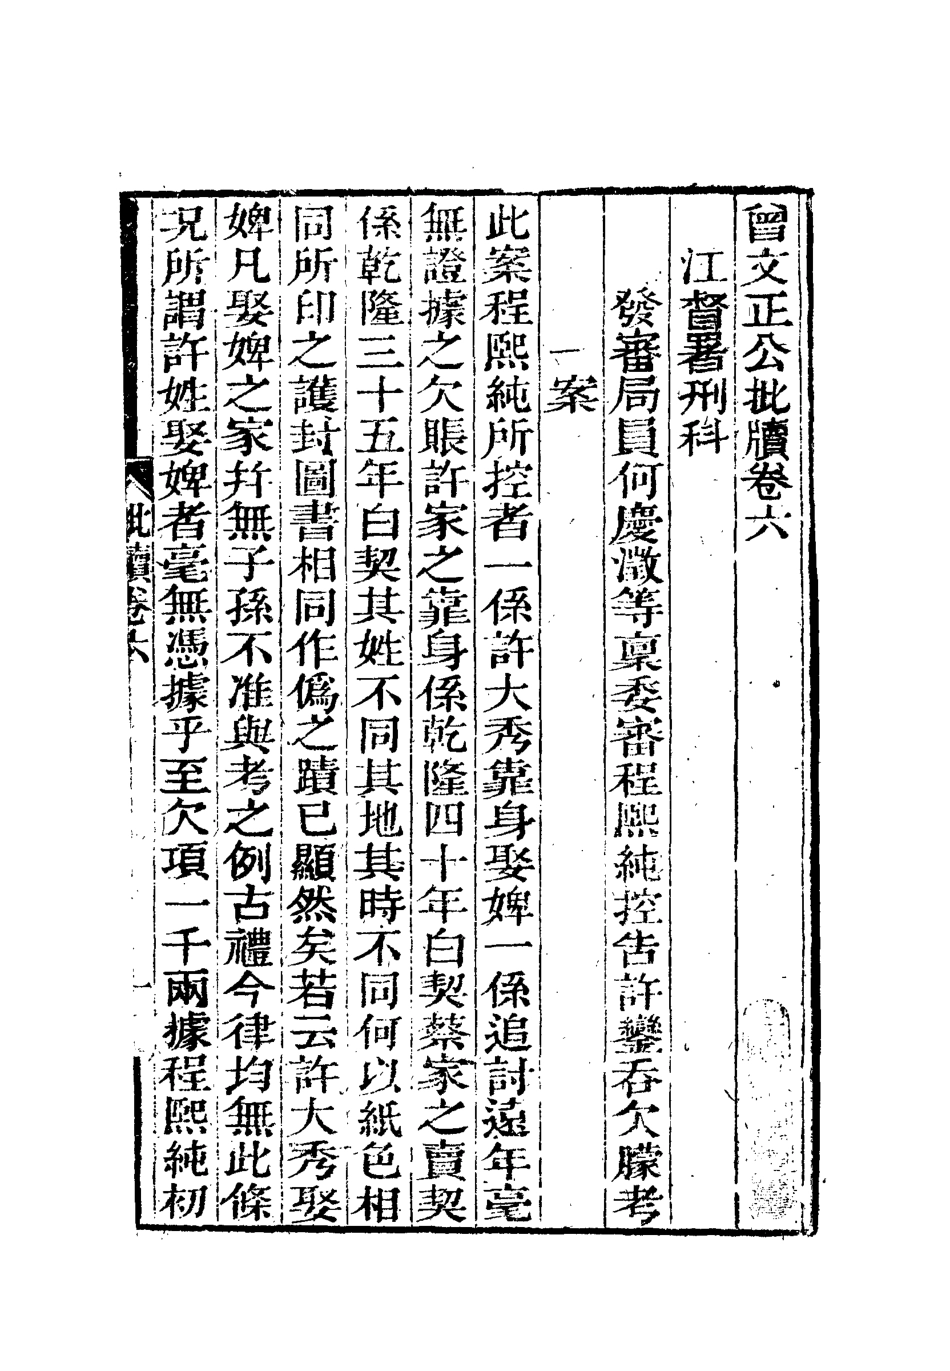 曾文正公批牘卷六
江督署刑科
發審局員何慶澂等稟委審程熙純控告許鑾吞欠朦考
一案
此案程熙純所控者一係許大秀靠身娶婢一係追討遠年毫
無證據之欠賬許家之靠身係乾隆四十年白契蔡家之賣契
係乾隆三十五年白契其姓不同其地其時不同何以紙色相
同所印之護封圖書相同作偽之蹟已顯然矣若云許大秀娶
婢凡娶婢之家幷無子孫不准與考之例古禮今律均無此條
況所謂許姓娶婢者毫無憑據乎至欠項一千兩據程熙純初
批牘卷六
一